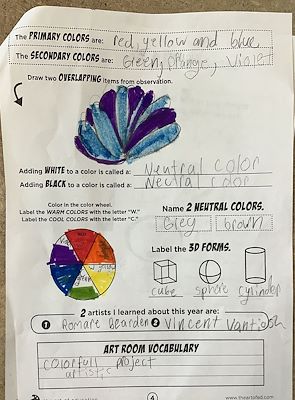 The PRIMARY COLORS are: red, yellow and blue
The SECONDARY COLORS are: Green, Orange, Violet
Draw two OVERLAPPING items from observation.
Adding WHITE to a color is called a: Neutral color
Adding BLACK to a color is called a: Neutral color
Color in the color wheel.
Label the WARM COLORS with the letter "W."
Label the COOL COLORS with the letter "C."
Name 2 NEUTRAL COLORS.
Grey brown
Label the 3D FORMS.
cube sphere cylinder
2 artists I learned about this year are:
1 Romare Bearden 2 Vincent
ART ROOM VOCABULARY
colorfull project
artistic
4 www.theartofed.com